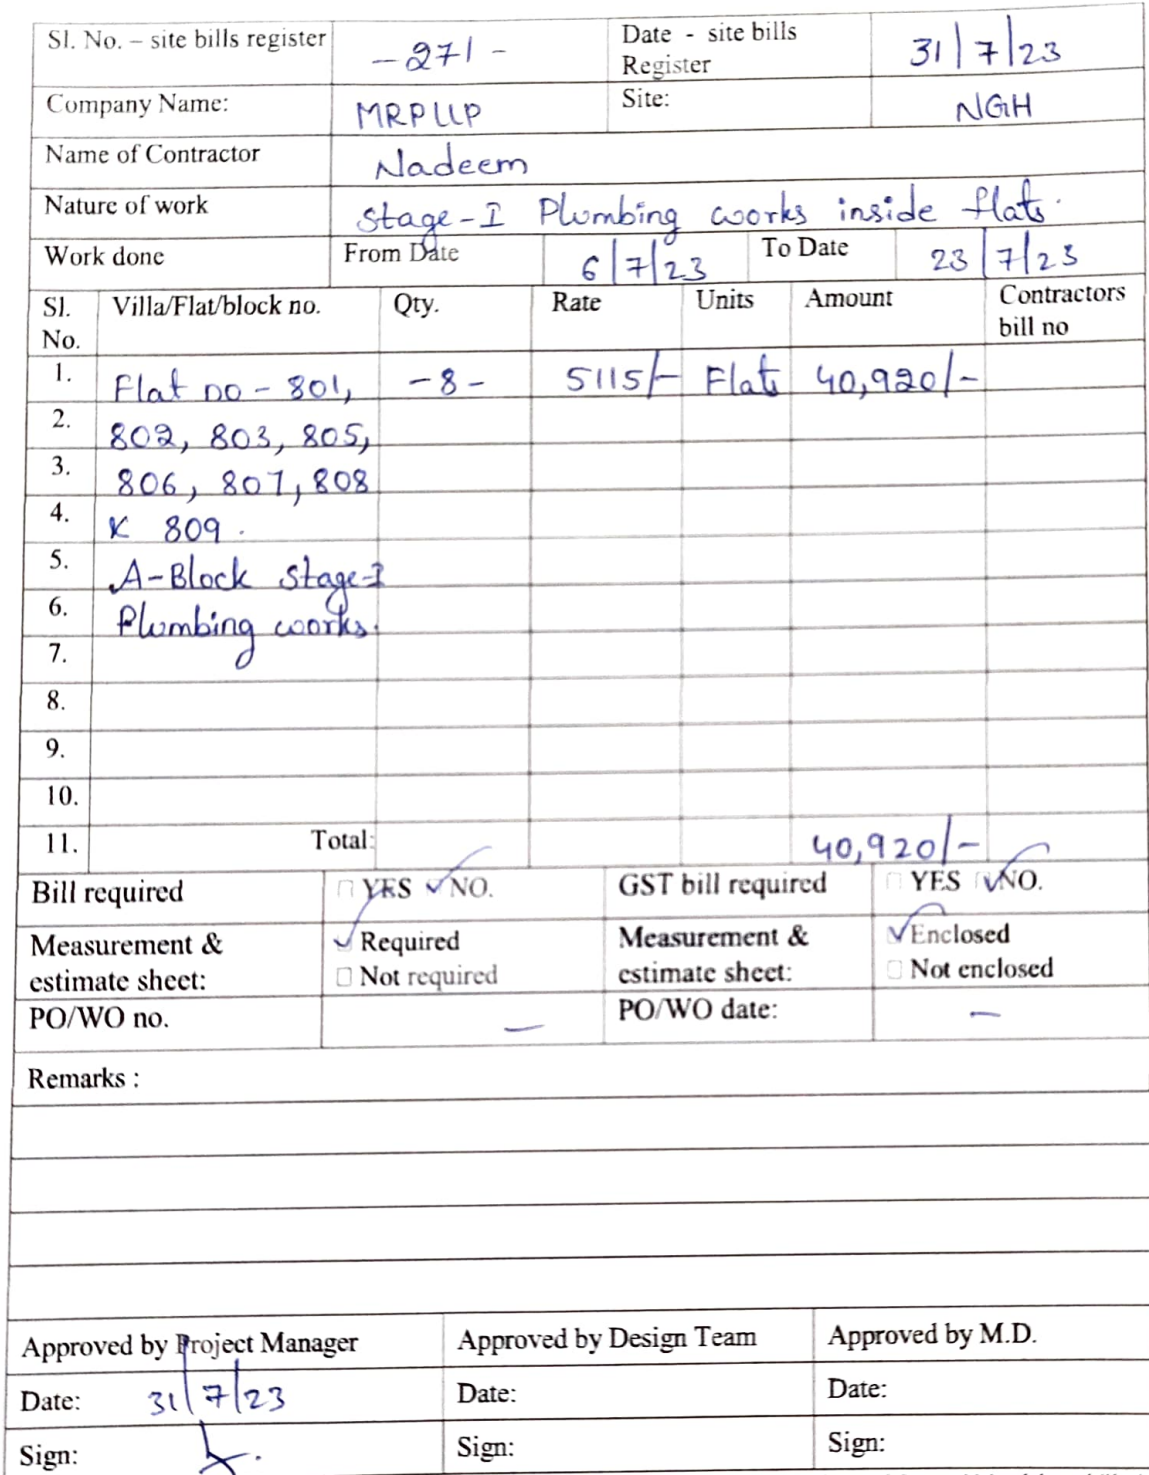 Sl. No. – site bills register -271- Date - site bills Register 31/7/23
Company Name: MRPLLP Site: NGH
Name of Contractor Nadeem
Nature of work Stage-I Plumbing works inside flats.
Work done From Date 6/7/23 To Date 23/7/23
Sl. No. Villa/Flat/block no. Qty. Rate Units Amount Contractors bill no
1. Flat no - 801, -8- 5115/- Flats 40,920/-
2. 802, 803, 805,
3. 806, 807, 808
4. & 809.
5. A-Block Stage-I
6. Plumbing works.
7.
8.
9.
10.
11. Total: 40,920/-
Bill required YES NO. GST bill required YES NO.
Measurement & estimate sheet: Required Not required Measurement & estimate sheet: Enclosed Not enclosed
PO/WO no. — PO/WO date: —
Remarks :
Approved by Project Manager Approved by Design Team Approved by M.D.
Date: 31/7/23 Date: Date:
Sign: Sign: Sign: